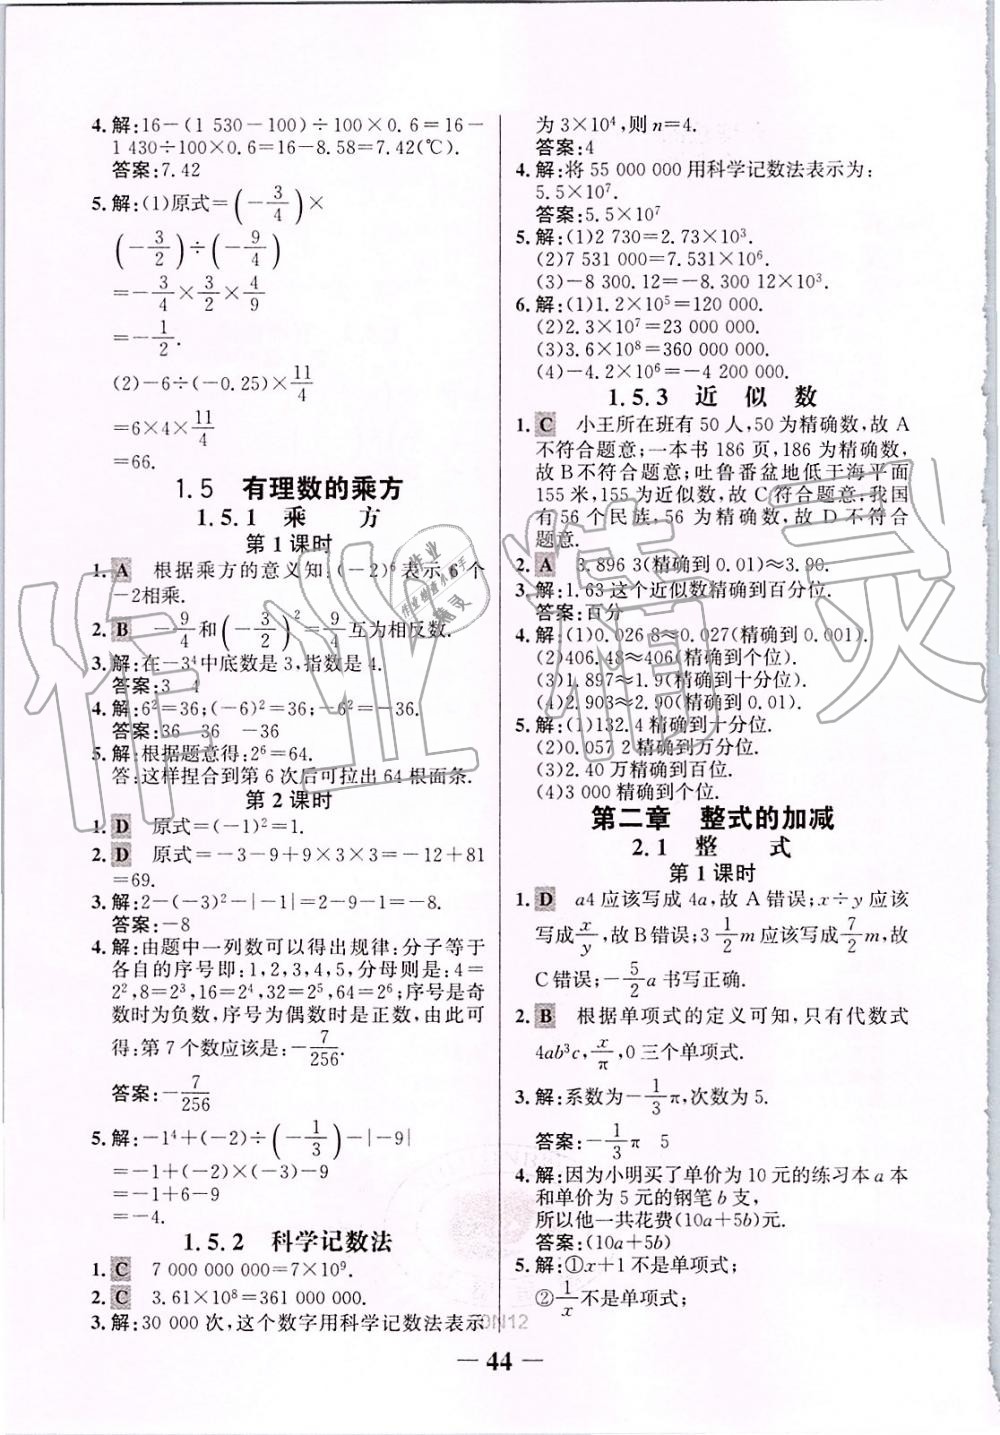 4. 解:16-(1 530-100)÷100×0.6=16-
1 430÷100×0.6=16-8.58=7.42(℃).
答案:7.42
5. 解:(1)原式=(-3/4)×
(-3/2)÷(-9/4)
=-3/4×3/2×4/9
=-1/2.
(2)-6÷(-0.25)×11/4
=6×4×11/4
=66.
1.5 有理数的乘方
1.5.1 乘 方
第1课时
1. A 根据乘方的意义知,(-2)⁶表示6个
-2相乘.
2. B -9/4和(-3/2)²=9/4互为相反数.
3. 解:在-3⁴中底数是3,指数是4.
答案:3 4
4. 解:6²=36;(-6)²=36;-6²=-36.
答案:36 36 -36
5. 解:根据题意得:2⁶=64.
答:这样捏合到第6次后可拉出64根面条.
第2课时
1. D 原式=(-1)²=1.
2. D 原式=-3-9+9×3×3=-12+81
=69.
3. 解:2-(-3)²-|-1|=2-9-1=-8.
答案:-8
4. 解:由题中一列数可以得出规律:分子等于
各自的序号即:1,2,3,4,5,分母则是:4=
2²,8=2³,16=2⁴,32=2⁵,64=2⁶;序号是奇
数时为负数,序号为偶数时是正数,由此可
得:第7个数应该是:-7/256.
答案:-7/256
5. 解:-1⁴+(-2)÷(-1/3)-|-9|
=-1+(-2)×(-3)-9
=-1+6-9
=-4.
1.5.2 科学记数法
1. C 7 000 000 000=7×10⁹.
2. C 3.61×10⁸=361 000 000.
3. 解:30 000次,这个数字用科学记数法表示
为3×10⁴,则n=4.
答案:4
4. 解:将55 000 000用科学记数法表示为:
5.5×10⁷.
答案:5.5×10⁷
5. 解:(1)2 730=2.73×10³.
(2)7 531 000=7.531×10⁶.
(3)-8 300.12=-8.300 12×10³.
6. 解:(1)1.2×10⁵=120 000.
(2)2.3×10⁷=23 000 000.
(3)3.6×10⁸=360 000 000.
(4)-4.2×10⁶=-4 200 000.
1.5.3 近 似 数
1. C 小王所在班有50人,50为精确数,故A
不符合题意;一本书186页,186为精确数,
故B不符合题意;吐鲁番盆地低于海平面
155米,155为近似数,故C符合题意;我国
有56个民族,56为精确数,故D不符合
题意.
2. A 3.896 3(精确到0.01)≈3.90.
3. 解:1.63这个近似数精确到百分位.
答案:百分
4. 解:(1)0.026 8≈0.027(精确到0.001).
(2)406.48≈406(精确到个位).
(3)1.897≈1.9(精确到十分位).
(4)2.903≈2.90(精确到0.01).
5. 解:(1)132.4精确到十分位.
(2)0.057 2精确到万分位.
(3)2.40万精确到百位.
(4)3 000精确到个位.
第二章 整式的加减
2.1 整 式
第1课时
1. D a4应该写成4a,故A错误;x÷y应该
写成x/y,故B错误;3 1/2 m应该写成7/2 m,故
C错误;-5/2 a书写正确.
2. B 根据单项式的定义可知,只有代数式
4ab³c,x/π,0三个单项式.
3. 解:系数为-1/3 π,次数为5.
答案:-1/3 π 5
4. 解:因为小明买了单价为10元的练习本a本
和单价为5元的钢笔b支,
所以他一共花费(10a+5b)元.
答案:(10a+5b)
5. 解:①x+1不是单项式;
②1/x不是单项式;
— 44 —
作业精灵